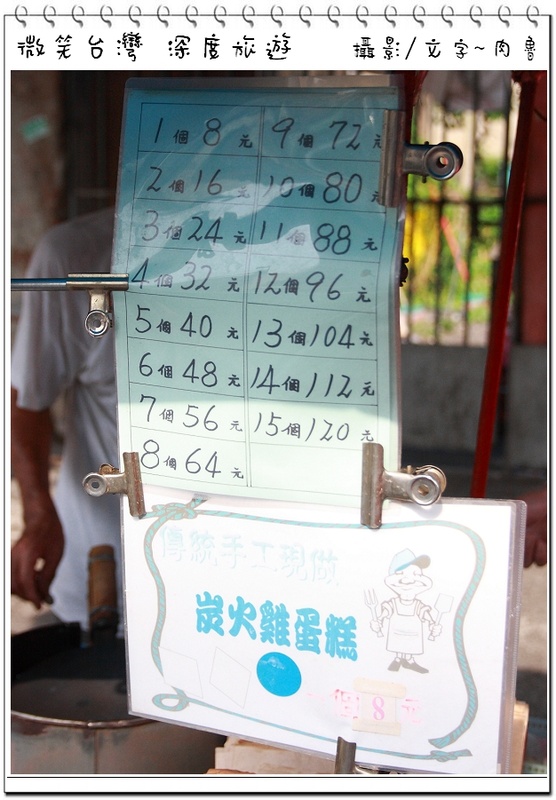 微笑台灣 深度旅遊 攝影/文字~肉魯
1個 8 元 9個 72元
2個16元 10個80元
3個24元 11個88元
4個32元 12個96元
5個40元 13個104元
6個48元 14個112元
7個56元 15個120元
8個64元
傳統手工現做
炭火雞蛋糕
個 8 元